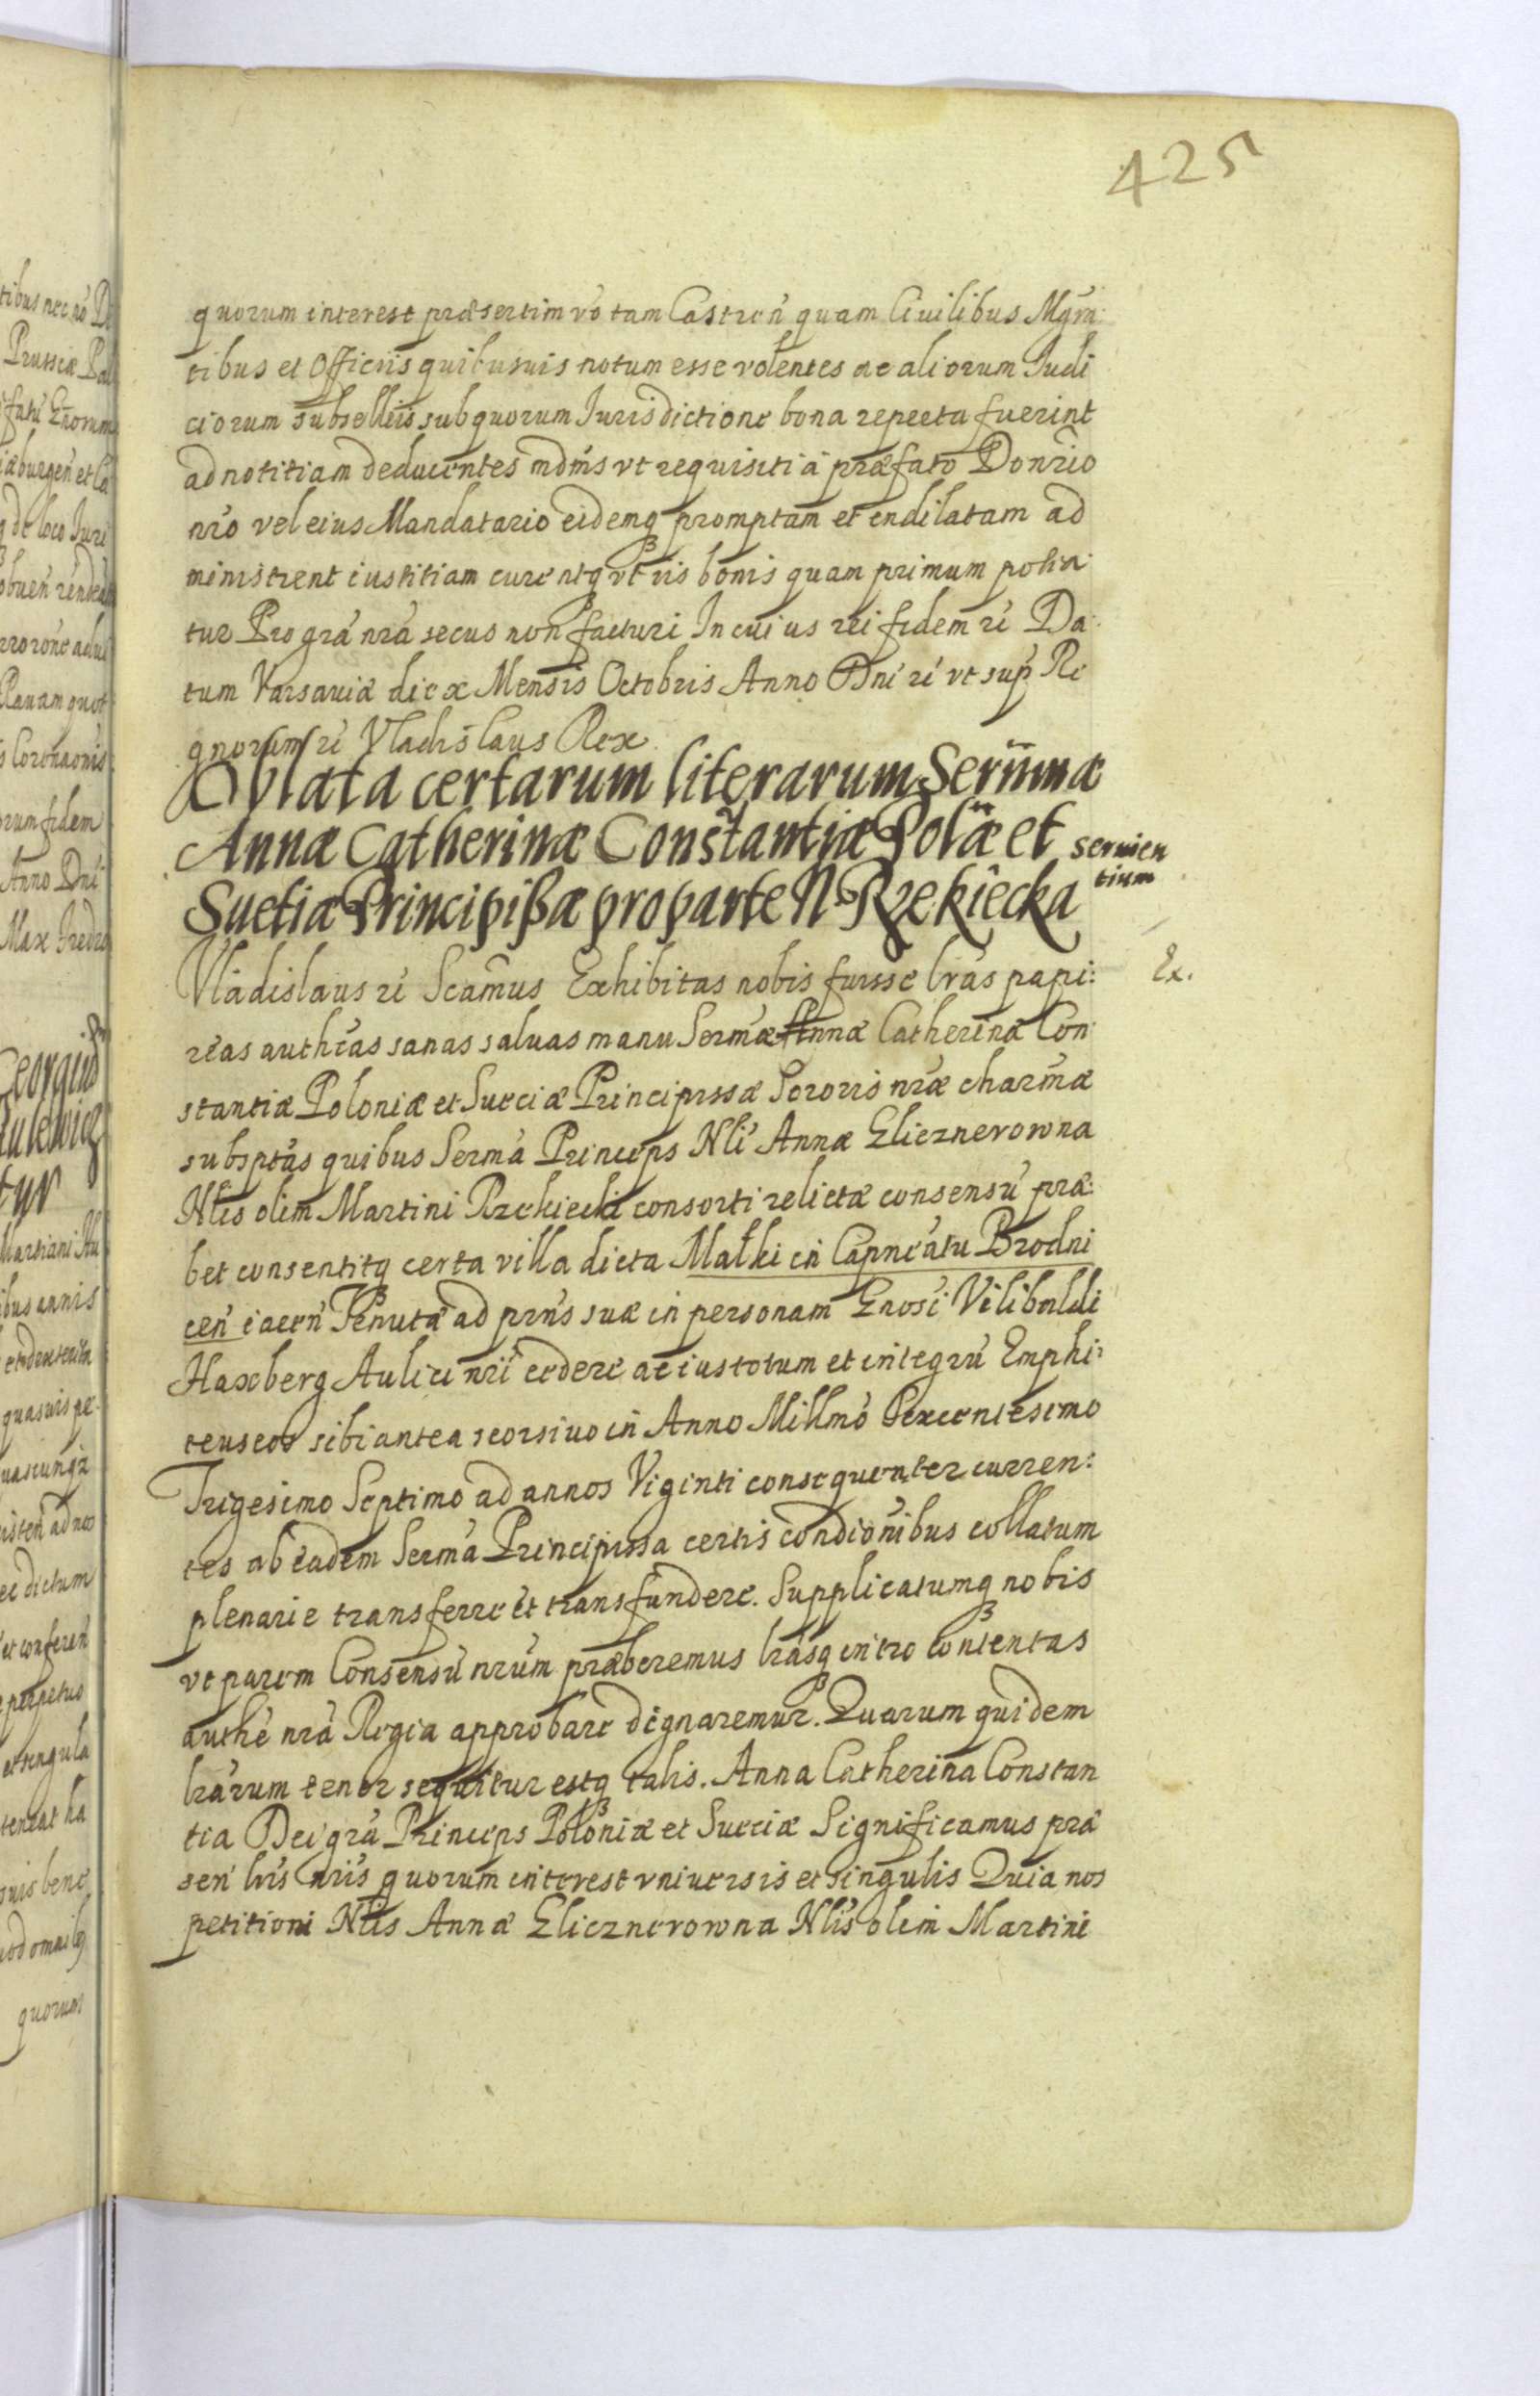 425
quorum interest præsertim vo tam Castren quam Civilibus Mgra:
tibus et Officiis quibusvis notum esse volentes ac aliorum Judi
ciorum subselleis sub quorum Jurisdictione bona reperta fuerint
ad notitiam deducentes mdms vt requisiti a præfato Donrio
nro vel eius Mandatario eidemq promptam et indilatam ad
ministrent iustitiam curentq vt iis bonis quam primum potia
tur Pro gra nra secus non facturi In cuius rei fidem ri Da
tum Varsaviæ die x Mensis Octobris Anno Dni ri vt sup Re
gnorum ri Vladislaus Rex
Oblata certarum literarum Seriimæ
Annæ Catherinæ Constantiæ Polæ et servien
tium
Suetiæ Principißæ pro parte N Rzekiecka
Vladislaus ri Scamus Exhibitas nobis fuisse lras papi: Ex.
reas autheas sanas salvas manu Sermæ Annæ Catherinæ Con
stantiæ Poloniæ et Sueciæ Principissæ Sororis nræ charmæ
subsptas quibus Serma Princeps Nli Annæ Elicznerowna
Nlis olim Martini Rzekiecki consorti relictæ consensu præ:
bet consentitq certa villa dicta Małki in Capneatu Brodni
cen iacen Tenutæ ad prns suæ in personam Gnosi Vilibaldi
Haxberg Aulici nri cedere ac ius totum et integru Emphi:
teuseos sibi antea seorsivo in Anno Millmo Sexcentesimo
Trigesimo Septimo ad annos Viginti consequenter curren:
tes ab eadem Serma Principissa certis condionibus collatum
plenarie transferre et transfundere. Supplicatumq nobis
vt parem Consensu nrum præberemus lrasq intro contentas
authe nra Regia approbare dignaremur. Quarum quidem
lrarum tenor sequitur estq talis. Anna Catherina Constan
tia Dei gra Princeps Poloniæ et Sueciæ Significamus præ
sen lris nris quorum interest vniversis et singulis Quia nos
petitioni Nlis Annæ Elicznerowna Nlis olim Martini